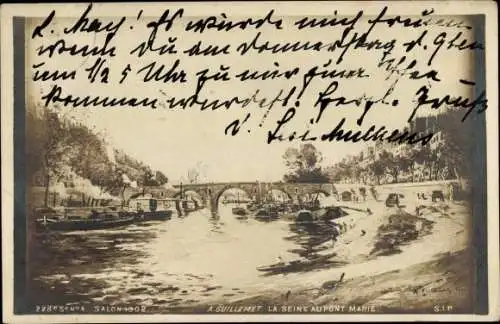 L. Mach! Es würde mich freuen
wenn Du am Donnerstag d. 9ten
um ½ 5 Uhr zu mir zum Thee
kommen würdest. Herzl. Gruß
v.
228e Serie SALON 1908 A. GUILLEMET LA SEINE AU PONT MARIE S.I.P.